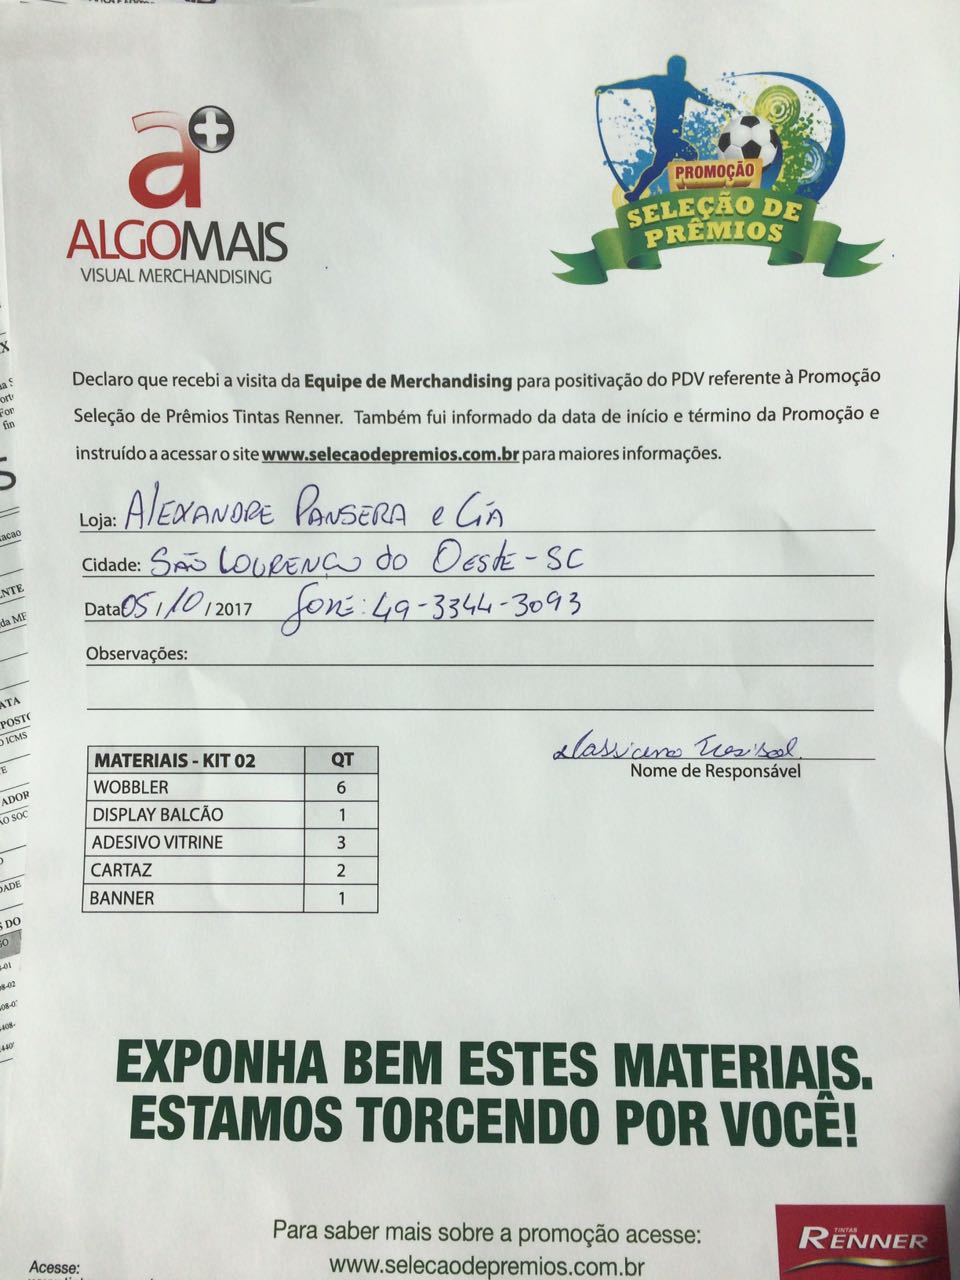 a+
ALGOMAIS
VISUAL MERCHANDISING
PROMOÇÃO
SELEÇÃO DE
PRÊMIOS
Declaro que recebi a visita da Equipe de Merchandising para positivação do PDV referente à Promoção
Seleção de Prêmios Tintas Renner. Também fui informado da data de início e término da Promoção e
instruído a acessar o site www.selecaodepremios.com.br para maiores informações.
Loja: ALEXANDRE PANSERA e CIA
Cidade: SÃO LOURENÇO DO OESTE-SC
Data 05/10/2017 FONE: 49-3344-3093
Observações:
Nome de Responsável
MATERIAIS - KIT 02 QT
WOBBLER 6
DISPLAY BALCÃO 1
ADESIVO VITRINE 3
CARTAZ 2
BANNER 1
EXPONHA BEM ESTES MATERIAIS.
ESTAMOS TORCENDO POR VOCÊ!
Para saber mais sobre a promoção acesse:
www.selecaodepremios.com.br
Acesse:
TINTAS
RENNER